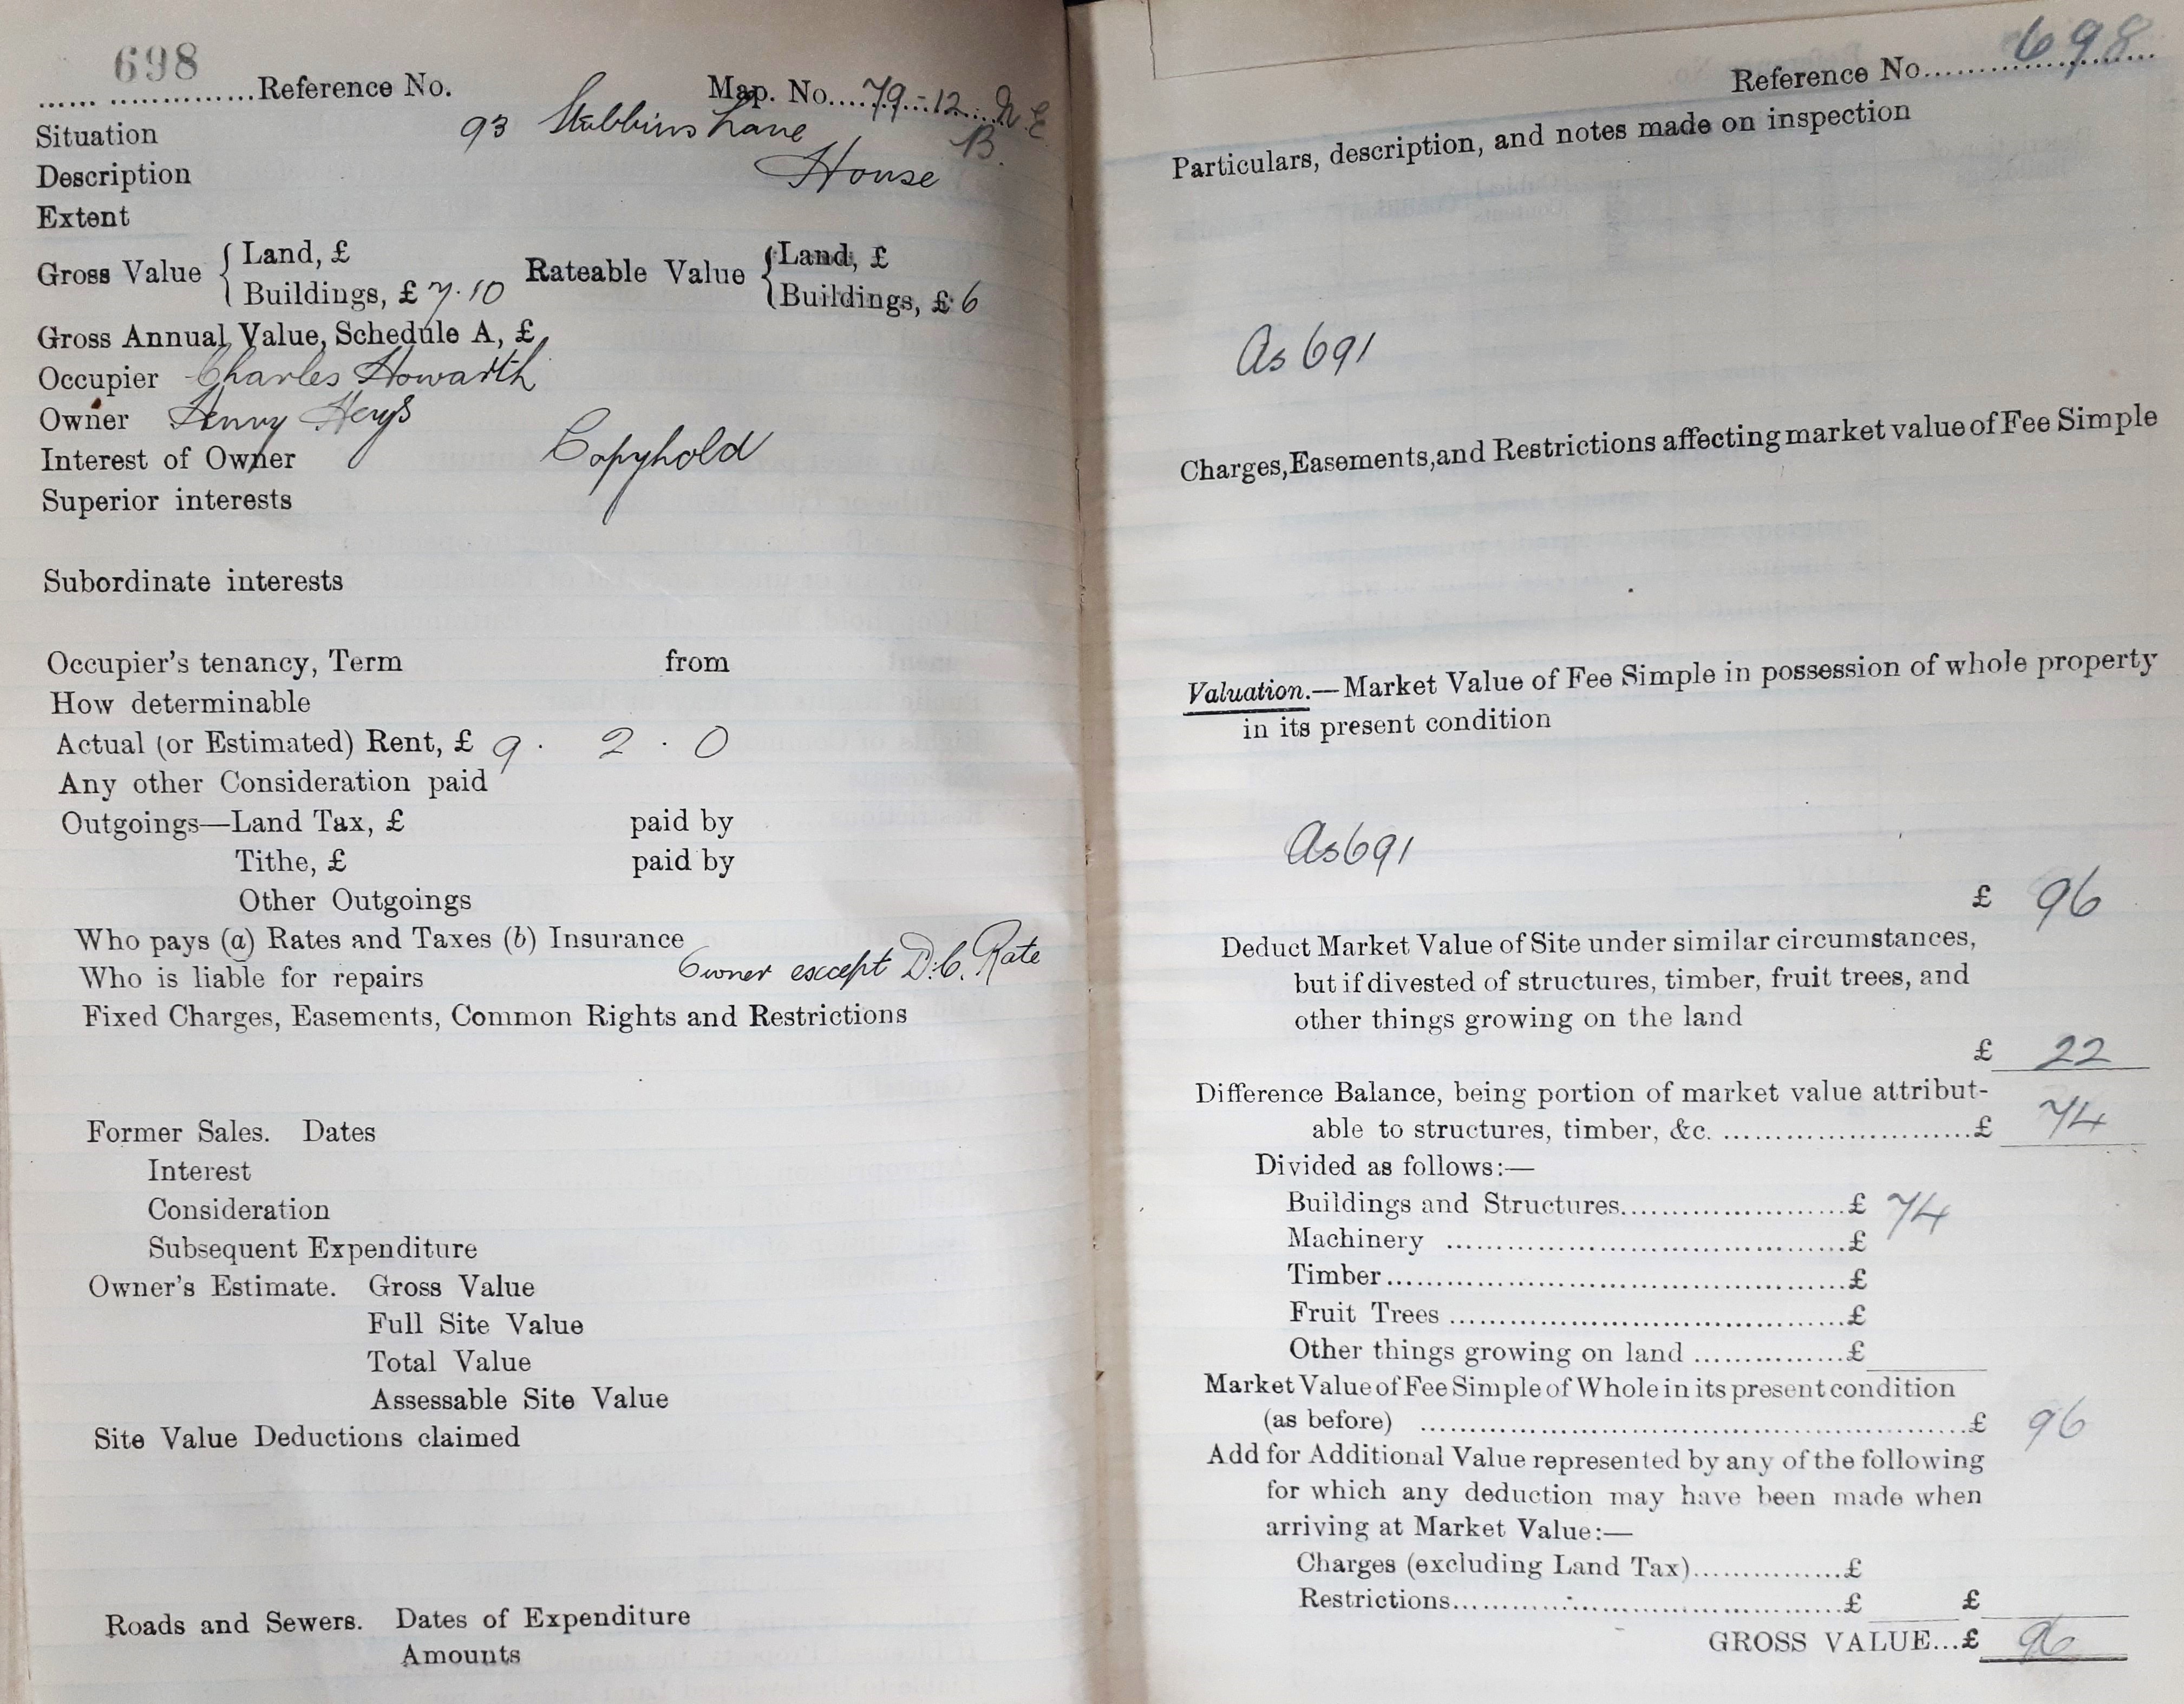 698
.................... Reference No. Map. No. 79-12 N E
B.
Situation 93 Stubbins Lane
Description House
Extent
Gross Value { Land, £ Rateable Value { Land, £
Buildings, £ 7.10 Buildings, £ 6
Gross Annual Value, Schedule A, £
Occupier Charles Howarth
Owner Henry Heys
Interest of Owner Copyhold
Superior interests
Subordinate interests
Occupier's tenancy, Term from
How determinable
Actual (or Estimated) Rent, £ 9 . 2 . 0
Any other Consideration paid
Outgoings—Land Tax, £ paid by
Tithe, £ paid by
Other Outgoings
Who pays (a) Rates and Taxes (b) Insurance
Who is liable for repairs Owner except D.C. Rate
Fixed Charges, Easements, Common Rights and Restrictions
Former Sales. Dates
Interest
Consideration
Subsequent Expenditure
Owner's Estimate. Gross Value
Full Site Value
Total Value
Assessable Site Value
Site Value Deductions claimed
Roads and Sewers. Dates of Expenditure
Amounts
Reference No. 698
Particulars, description, and notes made on inspection
As 691
Charges, Easements, and Restrictions affecting market value of Fee Simple
Valuation.—Market Value of Fee Simple in possession of whole property
in its present condition
As 691
£ 96
Deduct Market Value of Site under similar circumstances,
but if divested of structures, timber, fruit trees, and
other things growing on the land
£ 22
Difference Balance, being portion of market value attribut-
able to structures, timber, &c. ........................£ 74
Divided as follows:—
Buildings and Structures........................£ 74
Machinery ........................£
Timber........................£
Fruit Trees ........................£
Other things growing on land ...............£
Market Value of Fee Simple of Whole in its present condition
(as before) ........................£ 96
Add for Additional Value represented by any of the following
for which any deduction may have been made when
arriving at Market Value:—
Charges (excluding Land Tax)...............£
Restrictions........................£ £
GROSS VALUE...£ 96